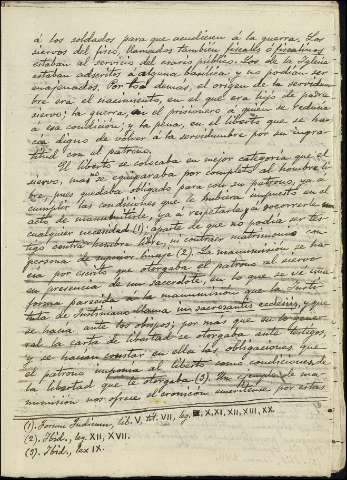 á los soldados para que acudiesen á la guerra. Los
siervos del fisco, llamados también fiscales ó fiscalinos
estaban al servicio del erario público. Los de la Iglesia
estaban adscritos á alguna basílica y no podían ser
enajenados. Por lo demás, el origen de la servidum-
bre era el nacimiento, en el que era hijo de padre
siervo; la guerra, en el prisionero á quien se reducía
á esa condición; y la pena, en el liberto que se ha-
cía digno de volver á la servidumbre por su ingra-
titud con el patrono.
El liberto se colocaba en mejor categoría que el
siervo, mas no se equiparaba por completo al hombre li-
bre, pues quedaba obligado para con su patrono, ya á
cumplir las condiciones que le hubiera impuesto en el
acto de manumitirle, ya á respetarle y á socorrerle en
cualquier necesidad (1); aparte de que no podía ser tes-
tigo contra hombre libre, ni contraer matrimonio con
persona de superior linaje (2). La manumisión se ha-
cía por escrito que otorgaba el patrono al siervo
en presencia de un sacerdote, en lo que se ve una
forma parecida á la manumisión que la Insti-
tuta de Justiniano llama in sacrosantis ecclesiis, y que
se hacía ante los obispos; por más que en lo gene-
ral la carta de libertad se otorgaba ante testigos,
y se hacían constar en ella las obligaciones que
el patrono imponía al liberto como condiciones de
la libertad que le otorgaba (3). Un ejemplo de ma-
numisión nos ofrece el cronicón emeritense por estas
(1). Forum Judicum, lib. V, tit. VII, leg. X, XI, XII, XIII, XX.
(2). Ibid., leg. XII, XVII.
(3). Ibid., lex IX.